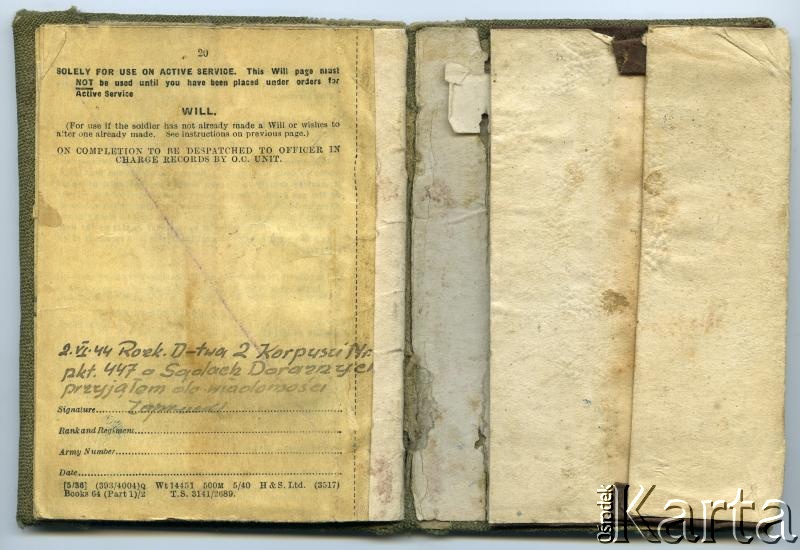 20
SOLELY FOR USE ON ACTIVE SERVICE. This Will page must
NOT be used until you have been placed under orders for
Active Service
WILL.
(For use if the soldier has not already made a Will or wishes to
alter one already made. See instructions on previous page.)
ON COMPLETION TO BE DESPATCHED TO OFFICER IN
CHARGE RECORDS BY O.C. UNIT.
2.VI.44 Rozk. D-twa 2 Korpusu Nr
pkt. 447 o Sądach Doraznych
przyjąłem do wiadomości
Signature
Rank and Regiment
Army Number
Date
[5/36] (393/4004)q Wt 14451 500M 5/40 H & S. Ltd. (3517)
Books 64 (Part 1)/2 T.S. 3141/2689.
ośrodek Karta